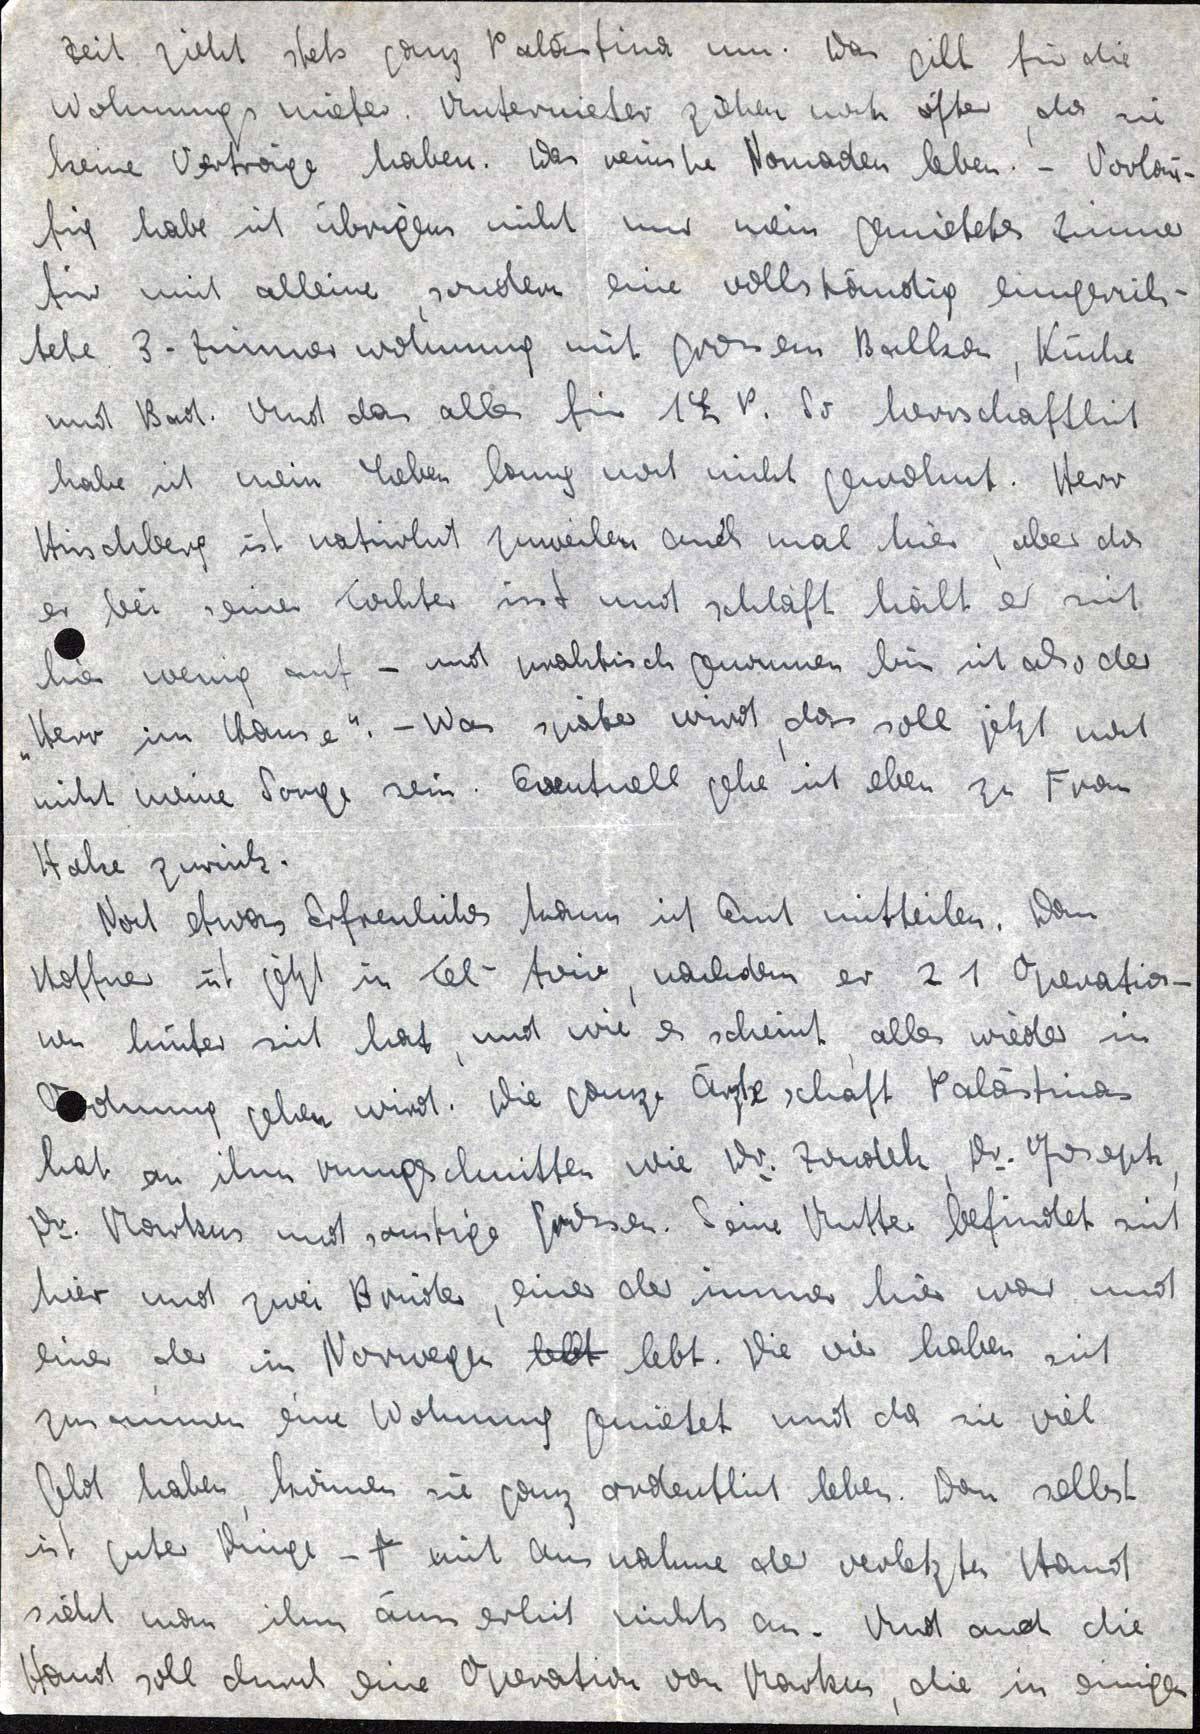 Zeit zieht stets ganz Palästina um. Das gilt für die
Wohnungsmieter. Untermieter ziehen noch öfter, da sie
keine Verträge haben. Das reinste Nomadenleben. – Vorläu-
fig habe ich übrigens nicht nur mein gemietetes Zimmer
für mich alleine, sondern eine vollständig eingerich-
tete 3-Zimmerwohnung mit grossem Balkon, Küche
und Bad. Und das alles für 1 £ P. So herrschaftlich
habe ich mein Leben lang noch nicht gewohnt. Herr
Hirschberg ist natürlich zuweilen auch mal hier, aber da
er bei seiner Tochter isst und schläft hält er sich
hier wenig auf – und praktisch genommen bin ich also der
„Herr im Hause“. – Was später wird, das soll jetzt noch
nicht meine Sorge sein. Eventuell gehe ich eben zu Frau
Hake zurück.
Noch etwas Erfreuliches kann ich Euch mitteilen. Dan
Hoffner ist jetzt in Tel-Aviv, nachdem er 21 Operatio-
nen hinter sich hat, und wie es scheint, alles wieder in
Ordnung gehen wird. Die ganze Ärzteschaft Palästinas
hat an ihm rumgeschnitten wie Dr. Zondek, Dr. Joseph,
Dr. Markus und sonstige Grössen. Seine Mutter befindet sich
hier und zwei Brüder, einer der immer hier war und
einer der in Norwegen lebt lebt. Die vier haben sich
zusammen eine Wohnung gemietet und da sie viel
Geld haben, können sie ganz ordentlich leben. Dan selbst
ist guter Dinge – mit Ausnahme der verletzten Hand
sieht man ihm äusserlich nichts an. Und auch die
Hand soll durch eine Operation von Markus, die in einigen